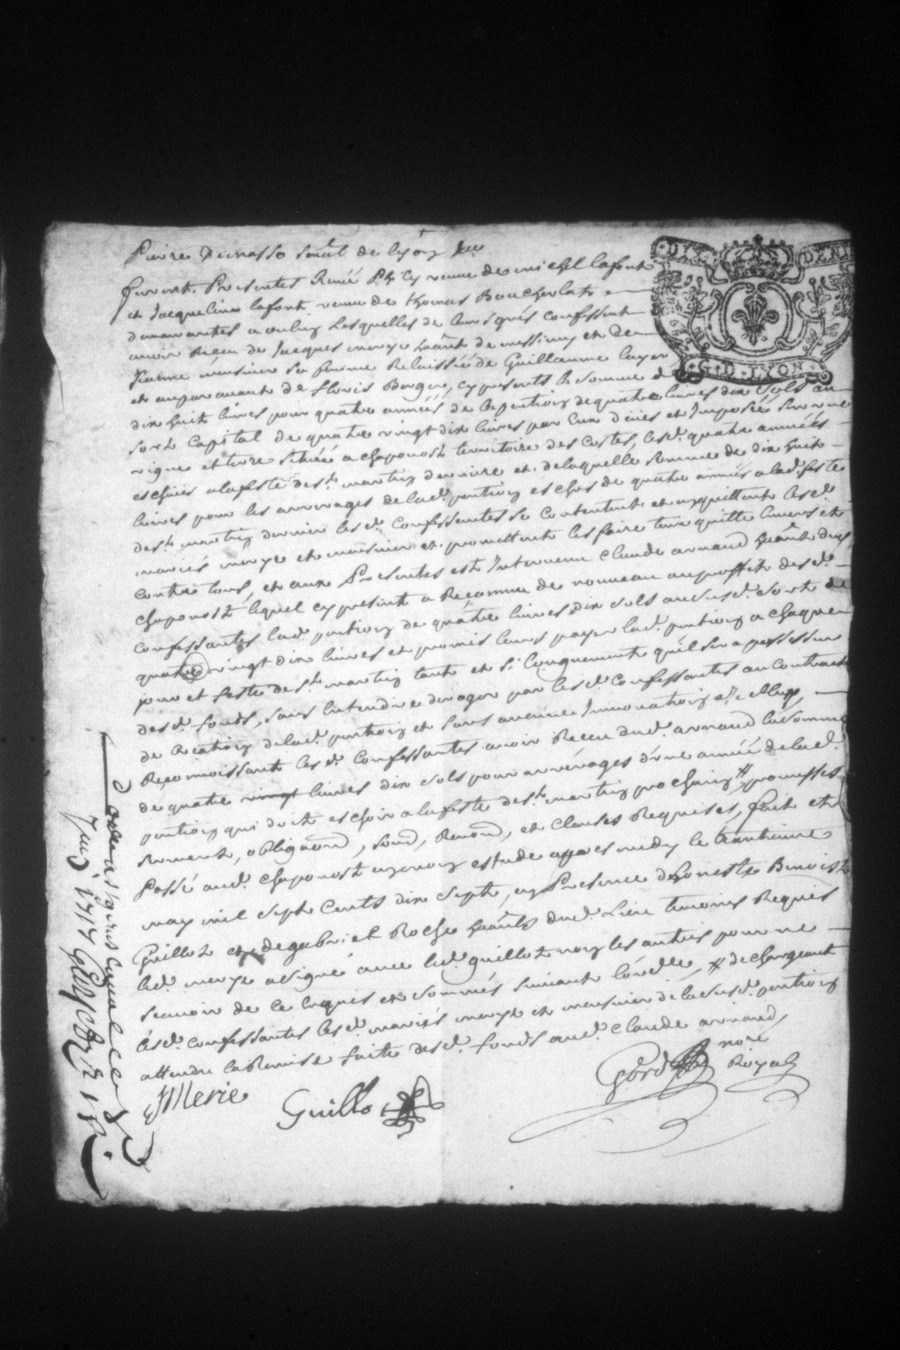 furent Presentes Renée vefve de michel lafont
et Jacqueline lafont vefve de thomas
demeurantes a oulins Lesquelles de leurs grés confessent
avoir Receu de Jacques merye habt. de messimy et de
Jeanne meusnier sa femme Relaissée de Guillaume
et auparavant de cy presents la somme de
dix huit livres pour quatre années de la pention de quatre livres dix sols au
sort Capital de quatre vingt dix livres par eux deües et Imposée sur une
vigne et terre située a chaponost territoire des Costes, lesd. quatre années
escheües a la feste de st. martin derniere et de laquelle somme de dix huit
livres pour les arrerages de lad. pention eschus de quatre années a lad. feste
de st. martin dernier lesd. confessantes se contentent et en quittent lesd.
mariés merye et meusnier et promettent les faire tenir quittes envers et
contre tous, et aux Presentes est Intervenu Claude arnaud habt. dud.
chaponost lequel cy present a Reconnu de nouveau au proffit desd.
confessantes lad. pention de quatre livres dix sols au susd. sort de
quatre vingt dix livres et promis leurs payer lad. pention a chaque
jour et feste de st. martin tant et si longuement qu'il sera possesseur
desd. fonds, sans entendre deroger par lesd. confessantes au contract
de Creation de lad. pention et sans aucune Innovation d'icelluy,
Reconnoissant lesd. confessantes avoir Receu dud. arnaud la somme
de quatre livres dix sols pour arrerages d'une année de lad.
pention qui doit eschoir a la feste de st. martin prochain promesses
serment, obligaon, soub, Renon, et clauses Requises, fait et
Passé aud. Chaponost en mon estude apres midy le trantieme
may mil sept cents dix sept, en Presence de honeste Benoist
Guillot et de gabriel Roche habts dud. Lieu temoins Requis
led. merye a signé avec led. guillot non les autres pour ne
scavoir de ce Enquis et sommés suivant l'ordce, dechargeant
lesd. confessantes lesd. mariés merye et meusnier de la susd. pention
attendu la Remise faite desd. fonds aud. Claude arnaud
JMerie
Guillot
nore
Royal
DENI
G · D · LYON